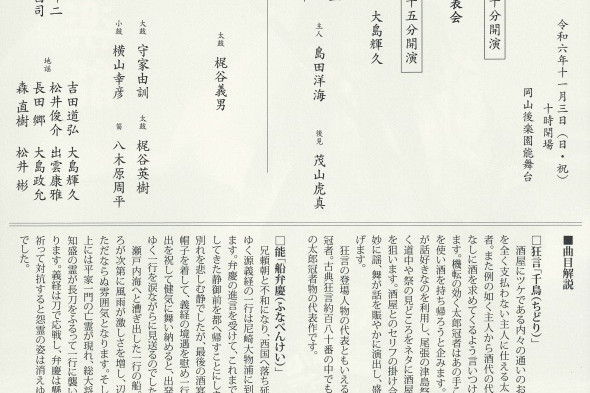 令和六年十一月三日（日・祝）
十時開場
岡山後楽園能舞台
十分開演
表会
十五分開演
大島輝久
主人 島田洋海
後見 茂山虎真
太鼓 梶谷義男
大鼓 守家由訓
小鼓 横山幸彦
太鼓 梶谷英樹
笛 八木原周平
二
司
地謡
吉田道弘 大島輝久
松井俊介 出雲康雅
長田郷 大島政允
森直樹 松井彬
■曲目解説
□狂言「千鳥（ちどり）」
酒屋にツケである内々の通いのお
を全く支払わない主人に仕える太
者。また例の如く主人から酒代の代
なしに酒を求めてくるよう言いつけ
ます。機転の効く太郎冠者はあの手こ
を使い酒を持ち帰ろうと企みます。
が話好きなのを利用し、尾張の津島祭
く道中や祭の見どころをネタに酒屋
を狙います。酒屋とのセリフの掛け合
妙に謡、舞が話を賑やかに演出し、盛
げます。
狂言の登場人物の代表ともいえる
冠者。古典狂言約百八十番の中でも
の太郎冠者物の代表作です。
□能「船弁慶（ふなべんけい）」
兄頼朝と不和になり、西国へ落ち延
ゆく源義経の一行は尼崎大物浦に到
ます。弁慶の進言を受けて、これまで
してきた静御前を都へ帰すことにしま
別れを悲しむ静でしたが、最後の酒宴
帽子を着して、義経の境遇を慰め一行
出を祝して健気に舞い納めると、出発
ゆく一行を涙ながらに見送るのでした
瀬戸内海へと漕ぎ出した一行の船
ろが次第に風雨が激しさを増し、辺
ただならぬ雰囲気となります。そし
上には平家一門の亡霊が現れ、総大将
知盛の霊が長刀をふるって一行に襲い
ります。義経は刀で応戦し、弁慶は懸
祈って対抗すると怨霊の姿は消えゆ
でした。